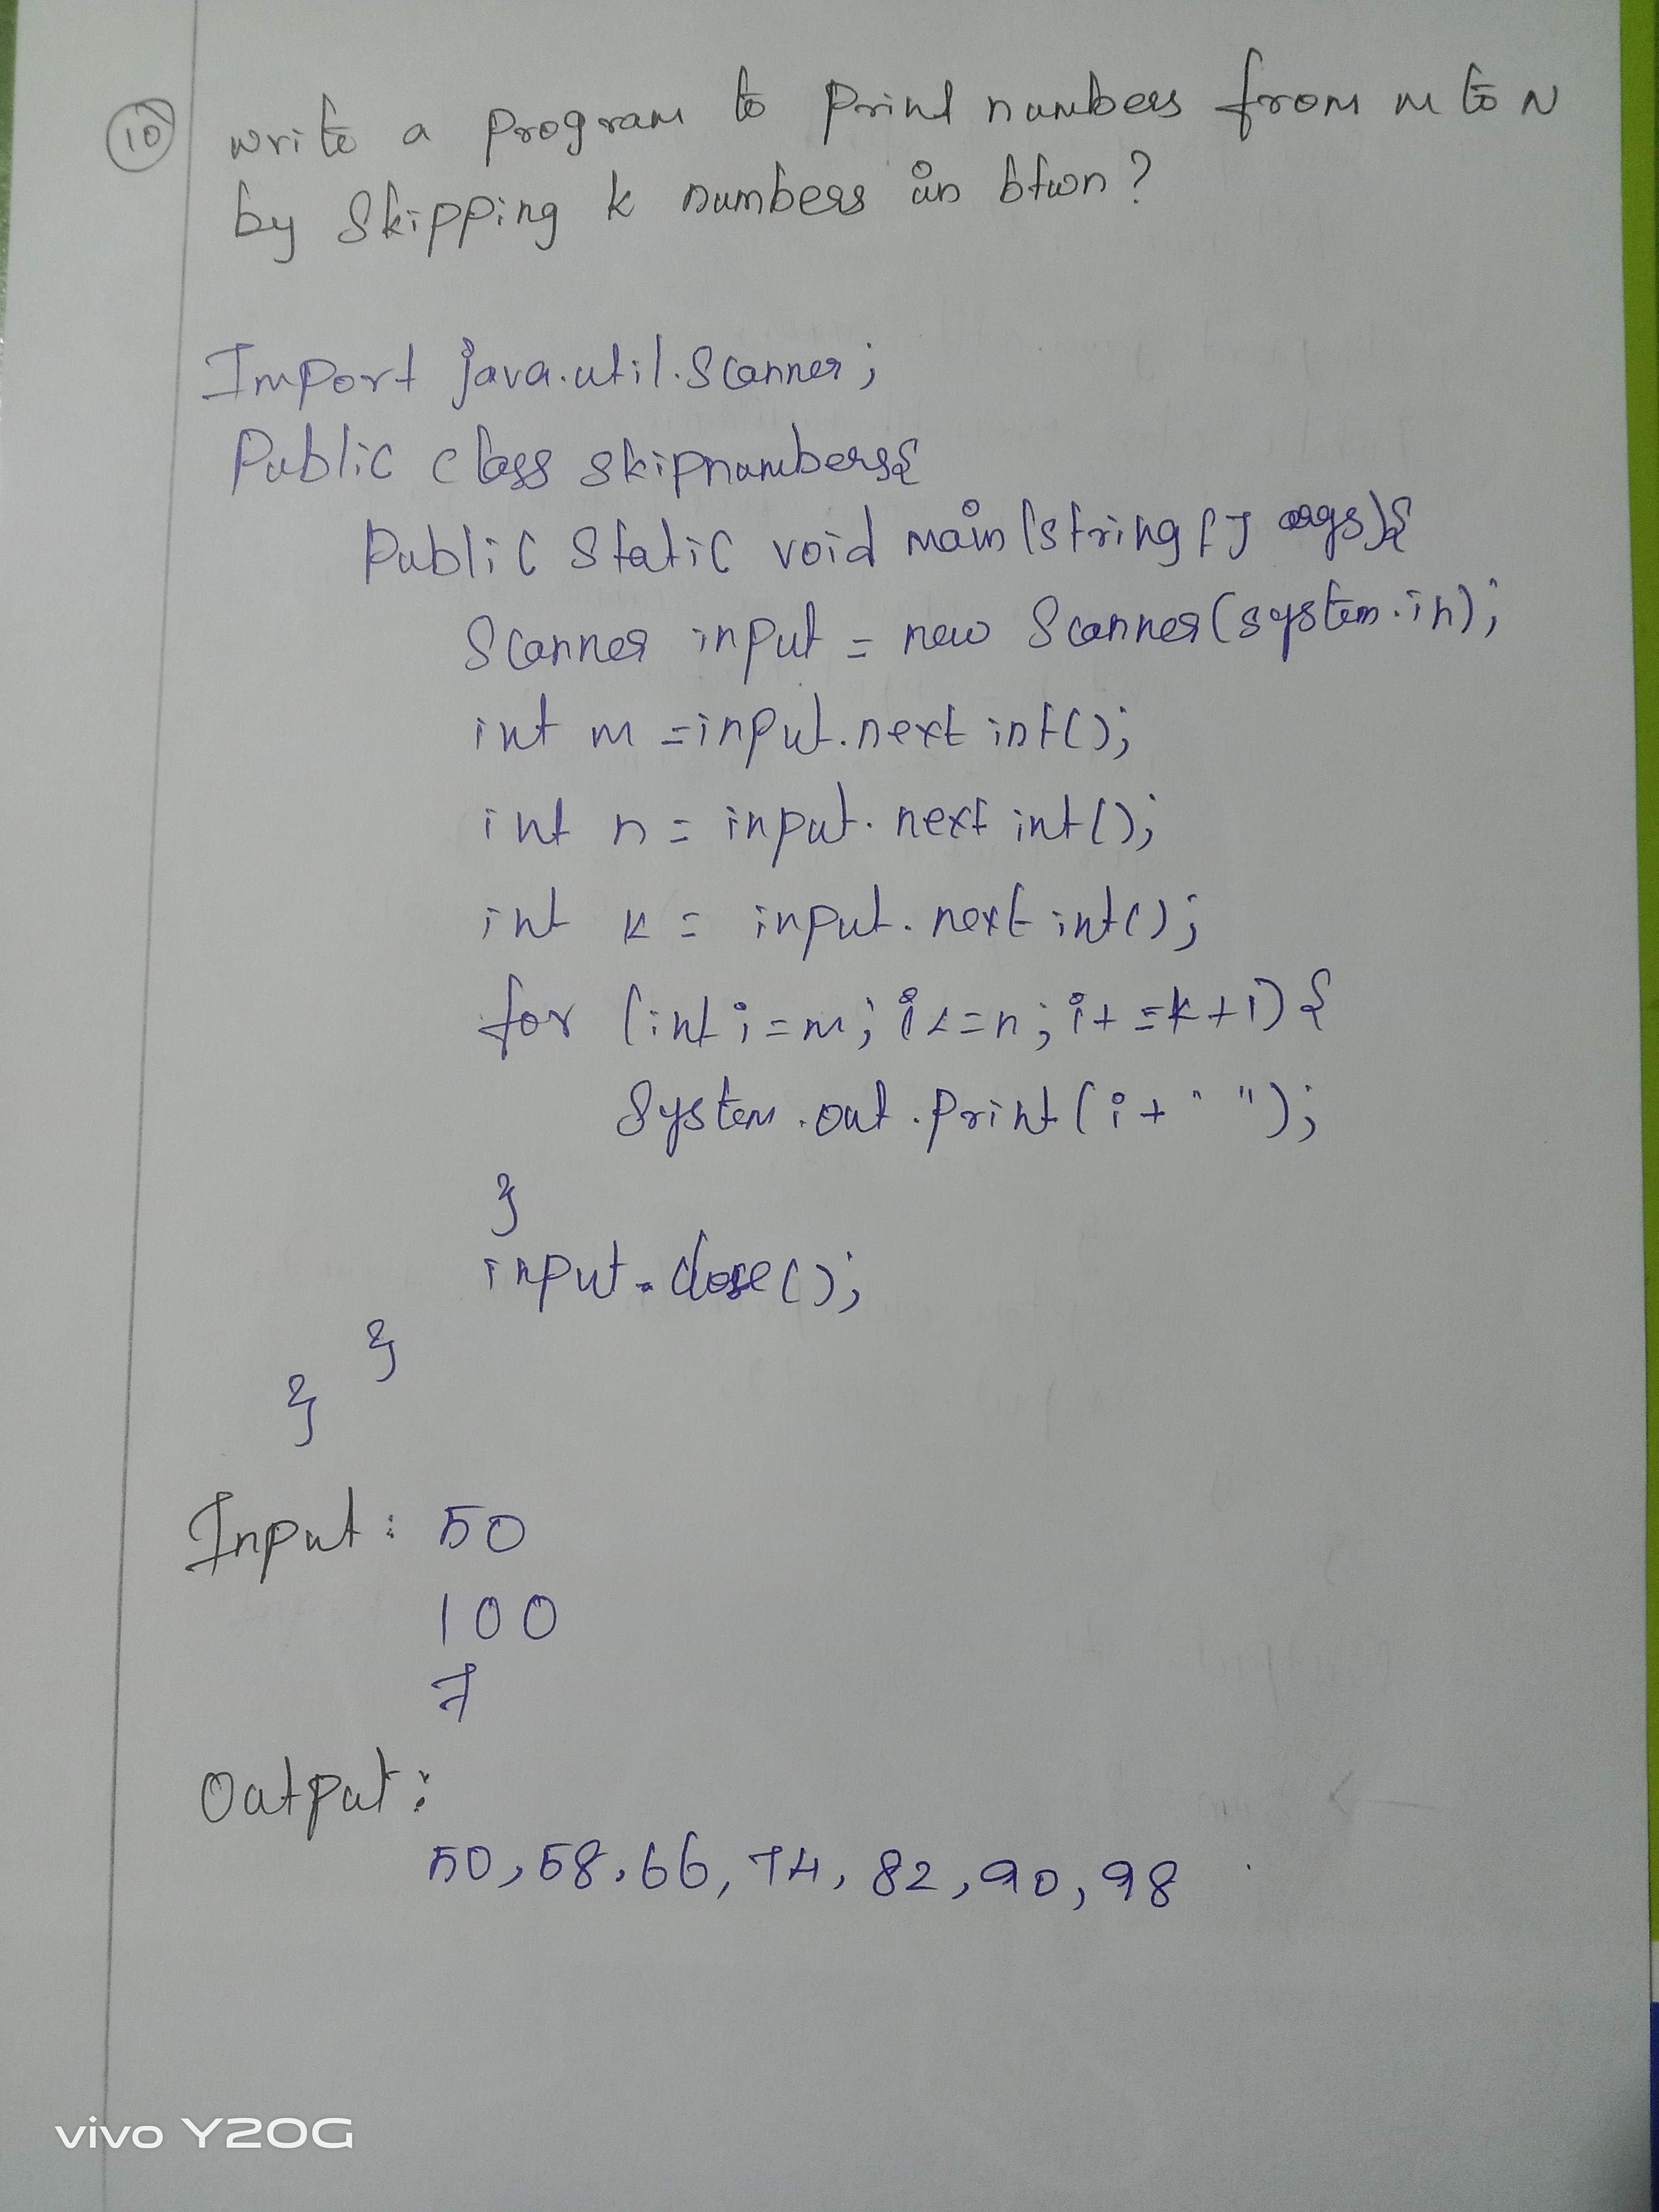 10 write a program to Print numbers from m to N
by Skipping k numbers in btwn ?
Import java.util.Scanner;
Public class skipnumbers{
Public Static void main(string[] args){
Scanner input = new Scanner(system.in);
int m =input.next int();
int n = input.next int();
int k = input.next int();
for (int i=m; i<=n; i+=k+1) {
System.out.print(i+" ");
}
input.close();
}
}
Input: 50
100
7
Output:
50,58,66,74,82,90,98
vivo Y20G